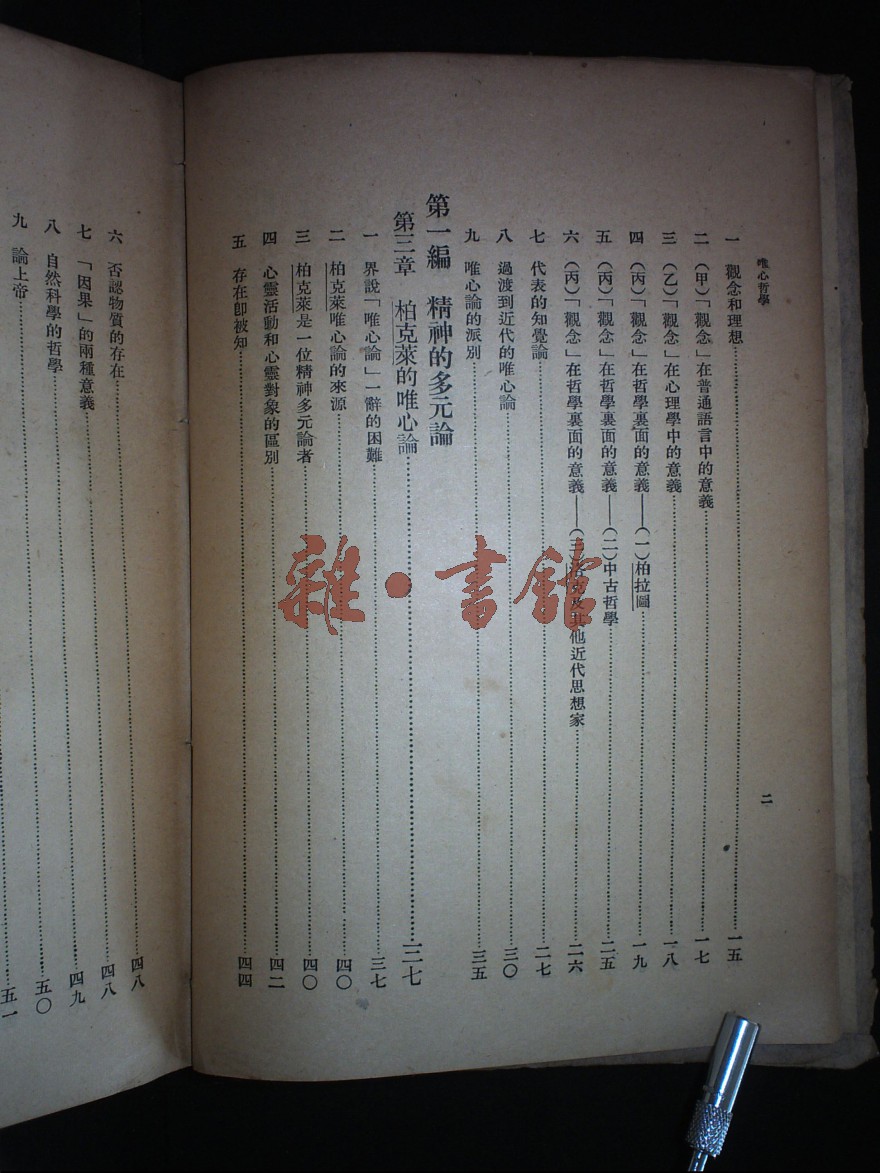 唯心哲學
二
一 觀念和理想……一五
二 (甲)「觀念」在普通語言中的意義……一七
三 (乙)「觀念」在心理學中的意義……一八
四 (丙)「觀念」在哲學裏面的意義——(一)柏拉圖……一九
五 (丙)「觀念」在哲學裏面的意義——(二)中古哲學……二五
六 (丙)「觀念」在哲學裏面的意義——(三)洛克及其他近代思想家……二六
七 代表的知覺論……二七
八 過渡到近代的唯心論……三〇
九 唯心論的派別……三五
第一編 精神的多元論
第三章 柏克萊的唯心論……三七
一 界說「唯心論」一辭的困難……三七
二 柏克萊唯心論的來源……四〇
三 柏克萊是一位精神多元論者……四〇
四 心靈活動和心靈對象的區別……四二
五 存在卽被知……四四
六 否認物質的存在……四八
七 「因果」的兩種意義……四八
八 自然科學的哲學……四九
九 論上帝……五〇
五一
雜·書館